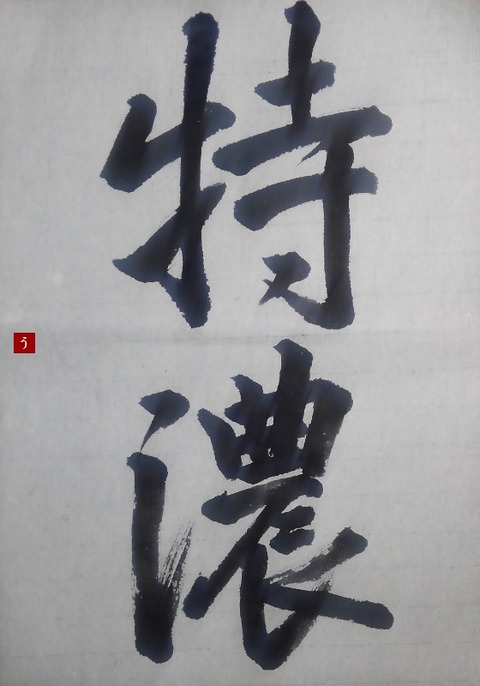 特濃
う